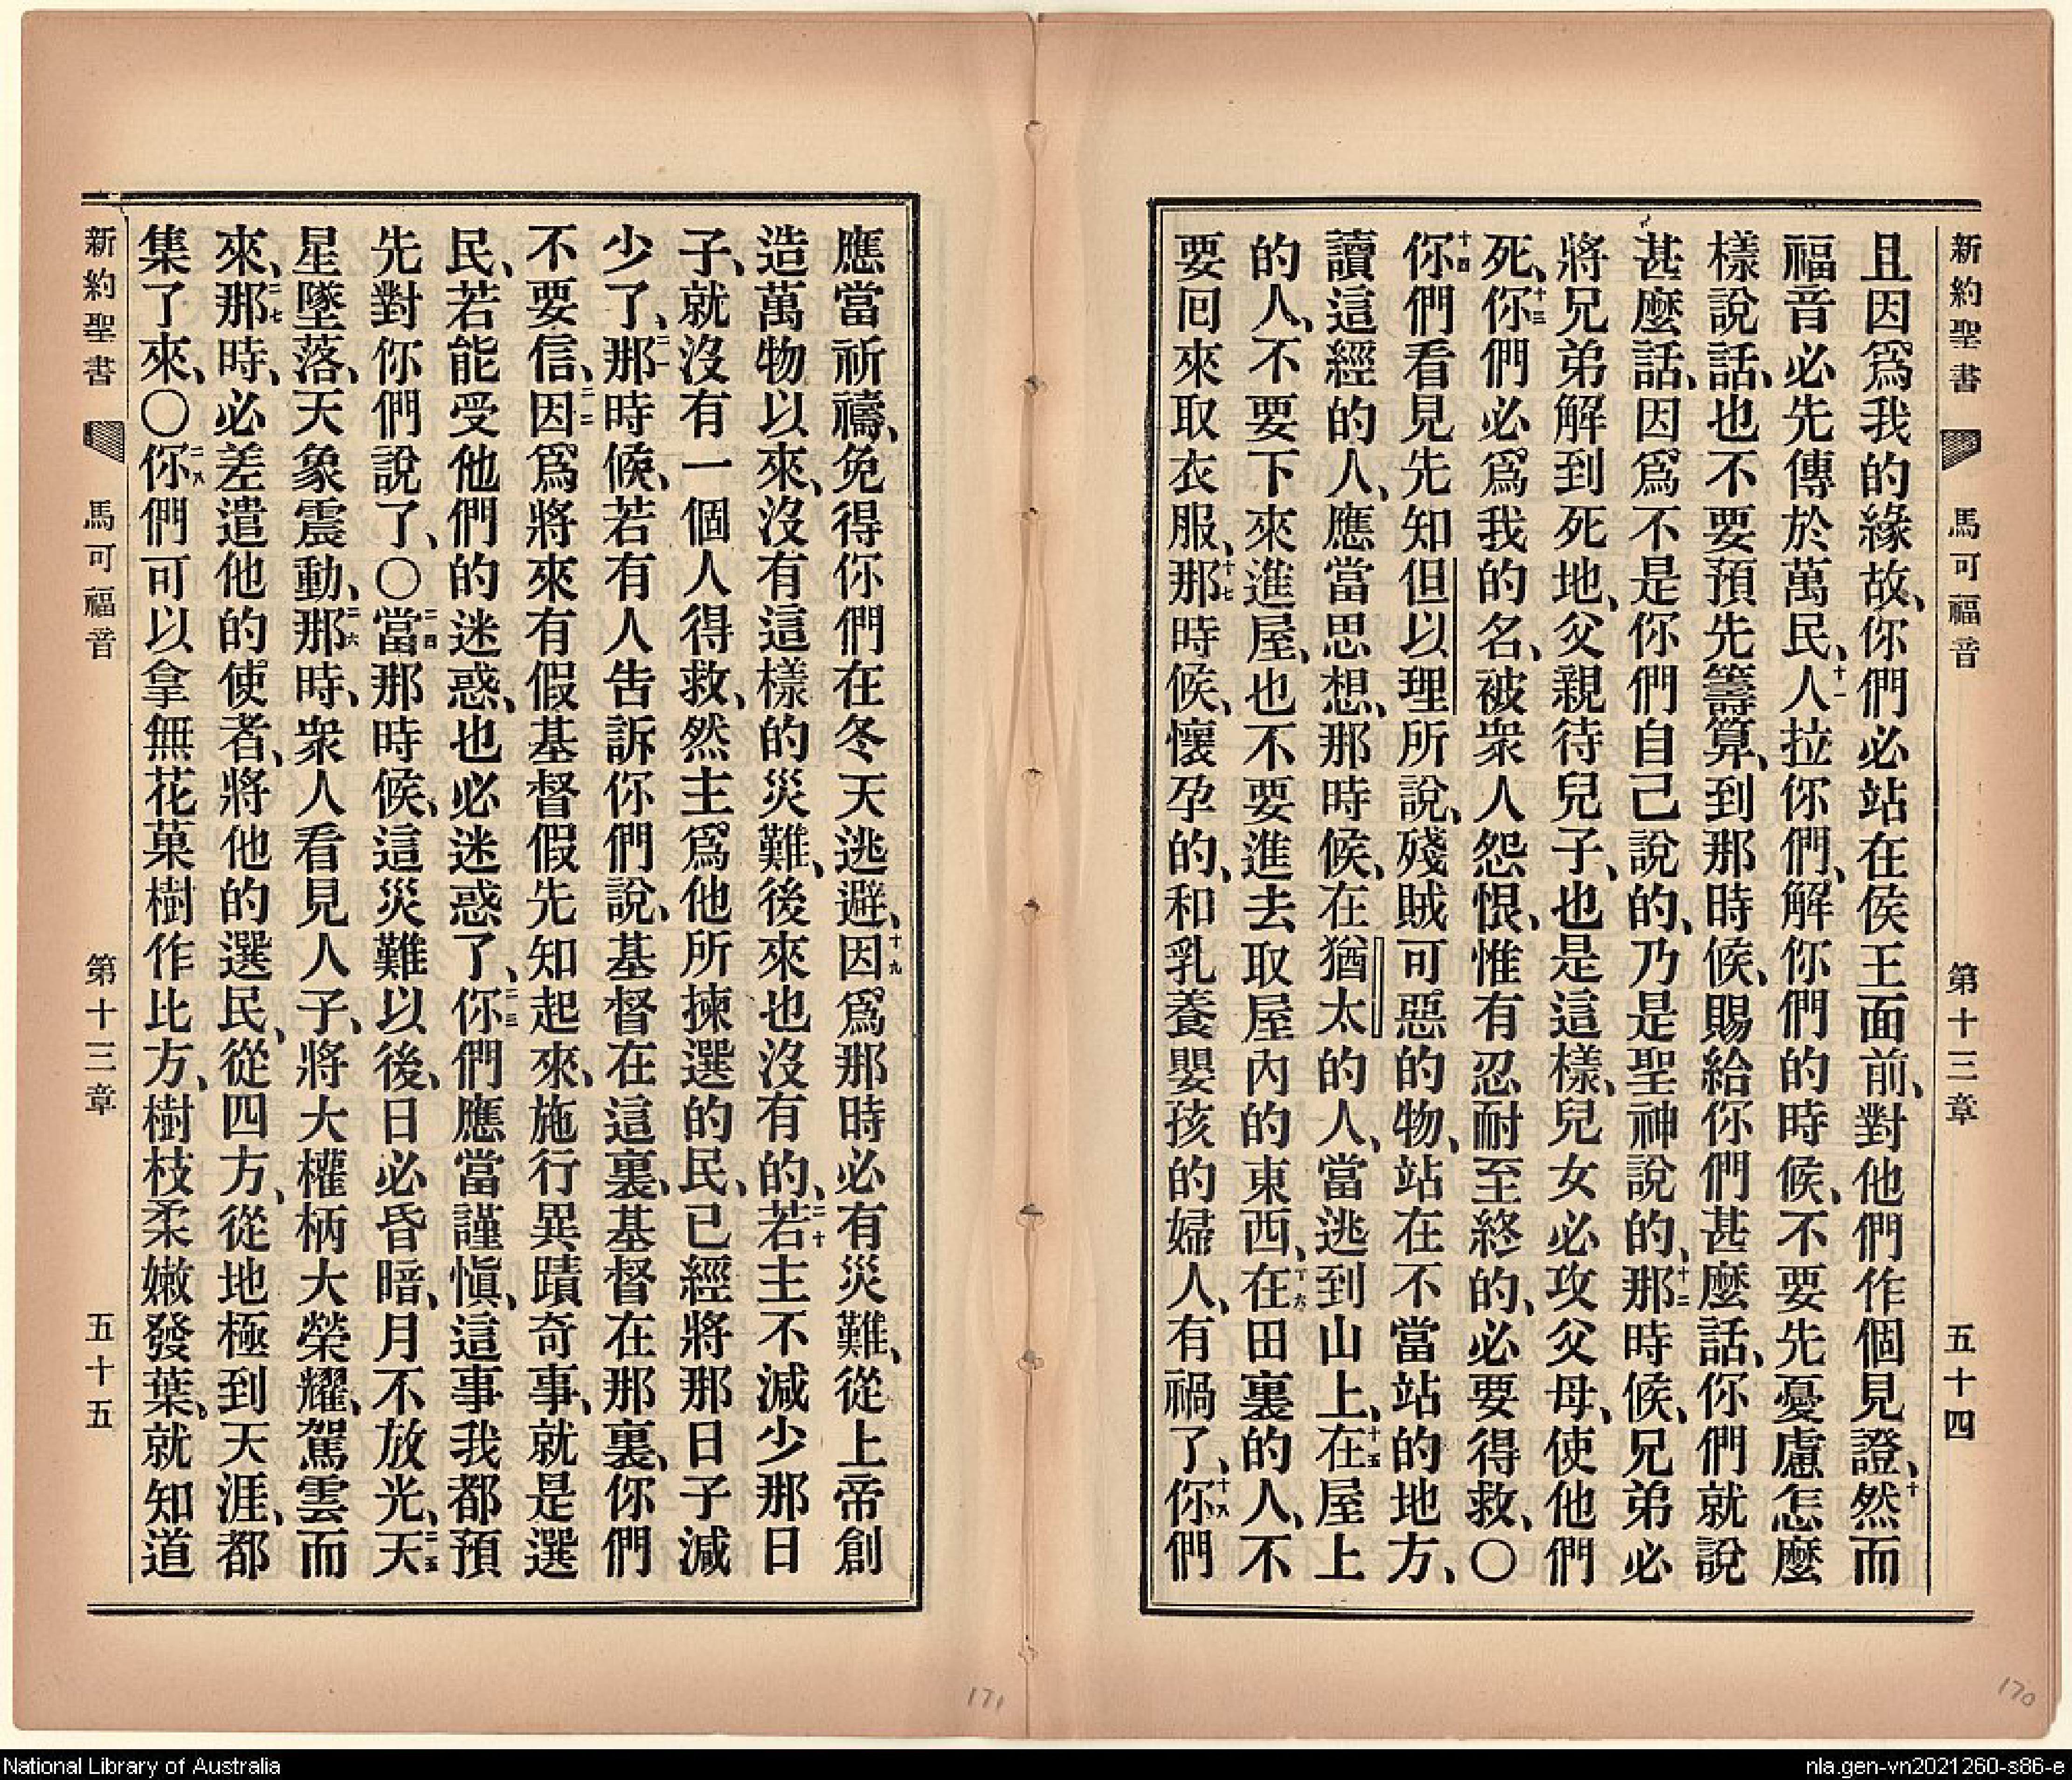 新約聖書 馬可福音 第十三章 五十四
且因爲我的緣故、你們必站在侯王面前、對他們作個見證、十然而
福音必先傳於萬民、十一人拉你們、解你們的時候、不要先憂慮怎麼
樣說話、也不要預先籌算、到那時候、賜給你們甚麼話、你們就說
甚麼話、因爲不是你們自己說的、乃是聖神說的、十二那時候、兄弟必
將兄弟解到死地、父親待兒子、也是這樣、兒女必攻父母、使他們
死、十三你們必爲我的名、被衆人怨恨、惟有忍耐至終的、必要得救、〇
十四你們看見先知但以理所說、殘賊可惡的物、站在不當站的地方、
讀這經的人、應當思想、那時候、在猶太的人、當逃到山上、十五在屋上
的人、不要下來進屋、也不要進去、取屋內的東西、十六在田裏的人、不
要囘來取衣服、十七那時候、懷孕的、和乳養嬰孩的婦人、有禍了、十八你們
應當祈禱、免得你們在冬天逃避、十九因爲那時必有災難、從上帝創
造萬物以來、沒有這樣的災難、後來也沒有的、二十若主不減少那日
子、就沒有一個人得救、然主爲他所揀選的民、已經將那日子減
少了、二一那時候、若有人告訴你們說、基督在這裏、基督在那裏、你們
不要信、二二因爲將來有假基督假先知起來、施行異蹟奇事、就是選
民、若能受他們的迷惑、也必迷惑了、二三你們應當謹愼、這事我都預
先對你們說了、〇二四當那時候、這災難以後、日必昏暗、月不放光、二五天
星墜落、天象震動、二六那時、衆人看見人子、將大權柄大榮耀、駕雲而
來、二七那時、必差遣他的使者、將他的選民、從四方、從地極到天涯、都
集了來、〇二八你們可以拿無花菓樹作比方、樹枝柔嫩發葉、就知道
新約聖書 馬可福音 第十三章 五十五
171
170
National Library of Australia
nla.gen-vn2021260-s86-e